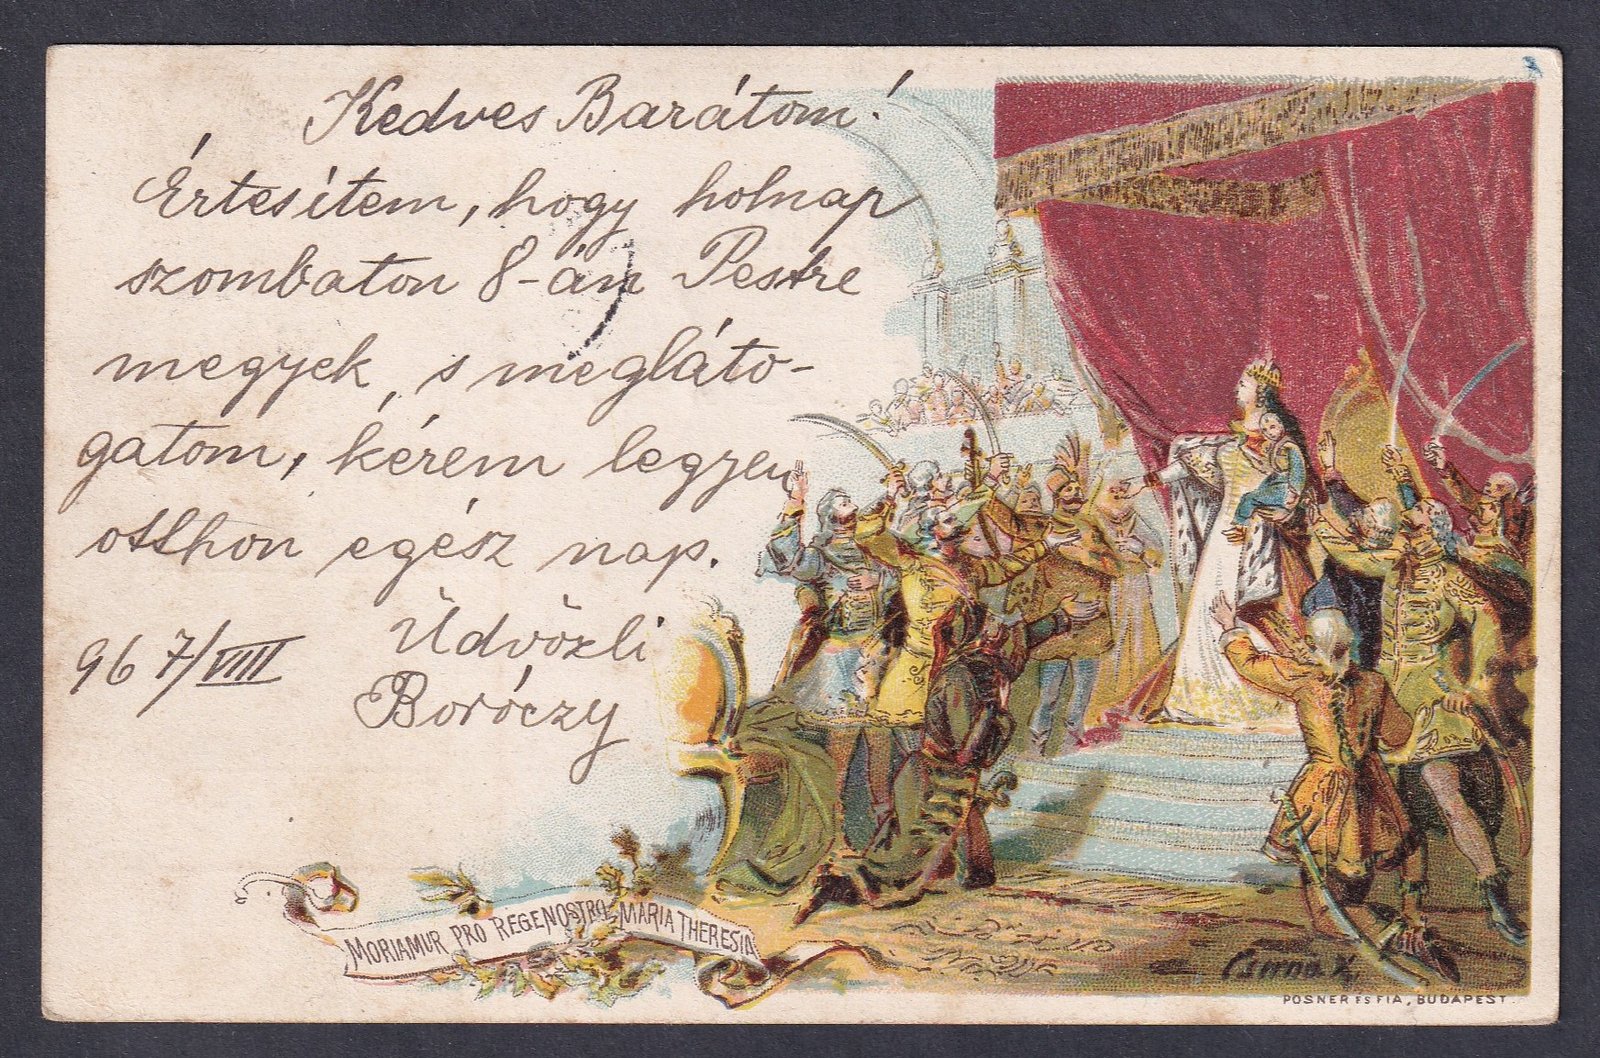 Kedves Barátom!
Értesítem, hogy holnap
szombaton 8-án Pestre
megyek, s megláto-
gatom, kérem legyen
otthon egész nap.
Üdvözli
96 7/VIII
Boróczy
MORIAMUR PRO REGE NOSTRO MARIA THERESIA
POSNER ES FIA, BUDAPEST.